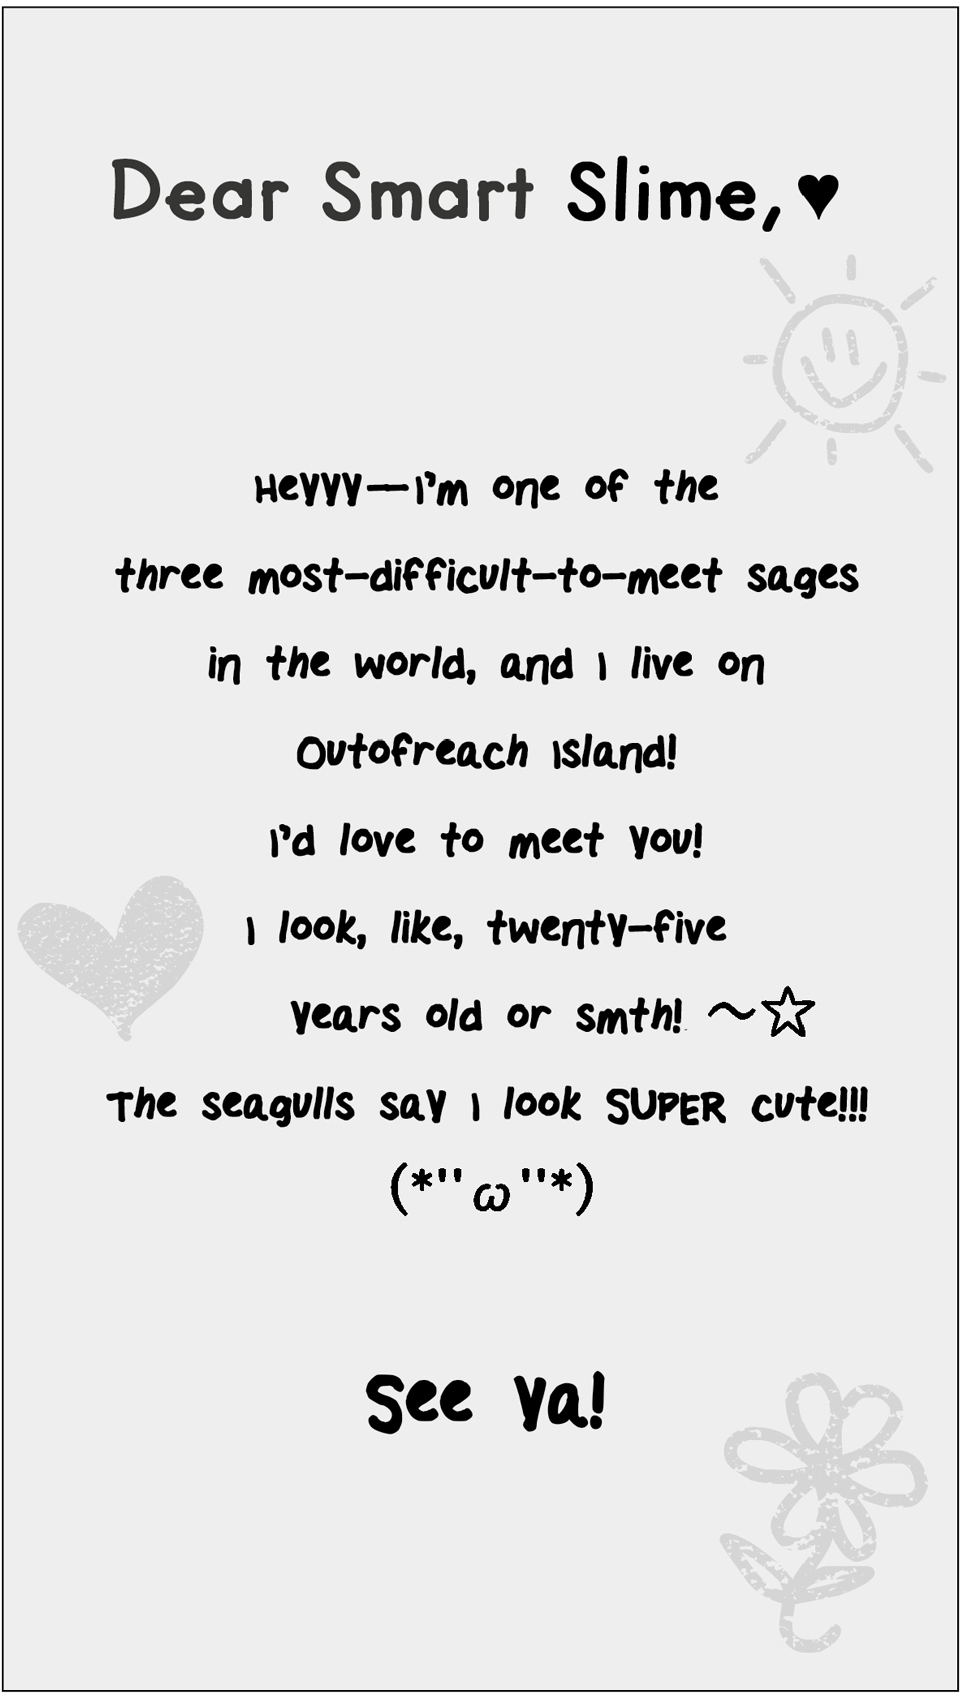 Dear Smart Slime,♥
Heyyy—I'm one of the
three most-difficult-to-meet sages
in the world, and I live on
Outofreach Island!
I'd love to meet you!
I look, like, twenty-five
years old or smth! ～☆
The seagulls say I look SUPER cute!!!
(*''ω''*)
See ya!